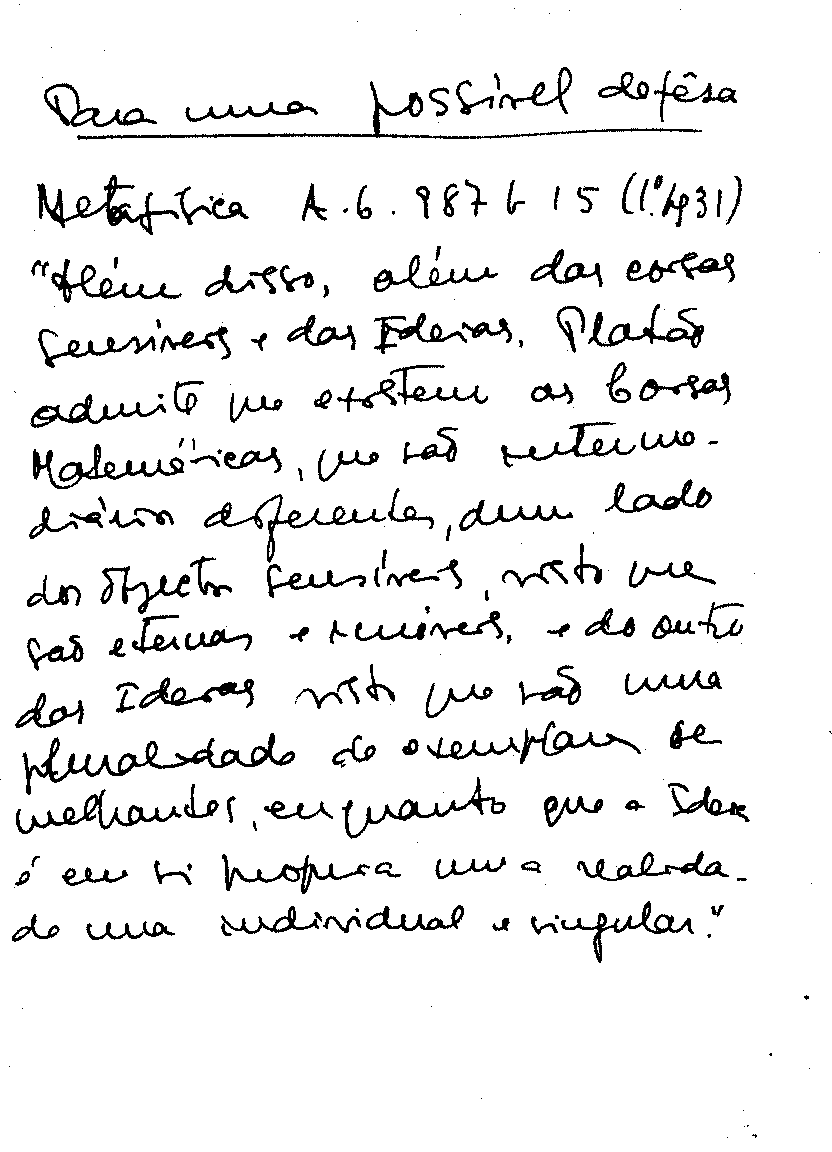 Para uma possível defêsa
Metafísica A.6. 987 b 15 (1º, pg 31)
"Além disso, além das coisas
sensíveis e das Ideias, Platão
admite que existem as Coisas
Matemáticas, que são interme-
diários diferentes, dum lado
dos objectos sensíveis, visto que
são eternas e imóveis, e do outro
das Ideias visto que são uma
pluralidade de exemplares se
melhantes, enquanto que a Ideia
é em si própria uma realida-
de una individual e singular."